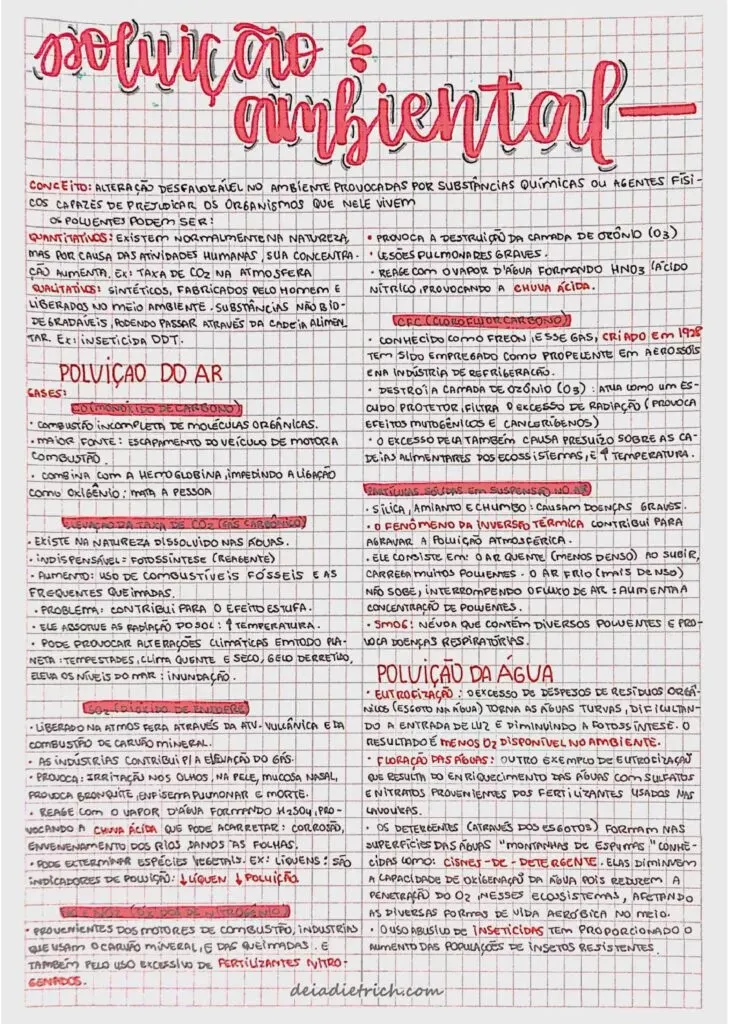 poluição
ambiental
CONCEITO: ALTERAÇÃO DESFAVORÁVEL NO AMBIENTE PROVOCADAS POR SUBSTÂNCIAS QUÍMICAS OU AGENTES FÍSI-
COS CAPAZES DE PREJUDICAR OS ORGANISMOS QUE NELE VIVEM
OS POLUENTES PODEM SER:
QUANTITATIVOS: EXISTEM NORMALMENTE NA NATUREZA,
MAS POR CAUSA DAS ATIVIDADES HUMANAS, SUA CONCENTRA-
ÇÃO AUMENTA. EX: TAXA DE CO2 NA ATMOSFERA
QUALITATIVOS: SINTÉTICOS, FABRICADOS PELO HOMEM E
LIBERADOS NO MEIO AMBIENTE. SUBSTÂNCIAS NÃO BIO-
DEGRADÁVEIS, PODENDO PASSAR ATRAVÉS DA CADEIA ALIMEN-
TAR. EX: INSETICIDA DDT.
POLUIÇÃO DO AR
GASES:
CO (MONÓXIDO DE CARBONO)
• COMBUSTÃO INCOMPLETA DE MOLÉCULAS ORGÂNICAS.
• MAIOR FONTE: ESCAPAMENTO DO VEÍCULO DE MOTOR A
COMBUSTÃO.
• COMBINA COM A HEMOGLOBINA, IMPEDINDO A LIGAÇÃO
COM O OXIGÊNIO: MATA A PESSOA
ELEVAÇÃO DA TAXA DE CO2 (GÁS CARBÔNICO)
• EXISTE NA NATUREZA DISSOLVIDO NAS ÁGUAS.
• INDISPENSÁVEL: FOTOSSÍNTESE (REAGENTE)
• AUMENTO: USO DE COMBUSTÍVEIS FÓSSEIS E AS
FREQUENTES QUEIMADAS.
• PROBLEMA: CONTRIBUI PARA O EFEITO ESTUFA.
• ELE ABSORVE AS RADIAÇÃO DO SOL: ↑ TEMPERATURA.
• PODE PROVOCAR ALTERAÇÕES CLIMÁTICAS EM TODO PLA-
NETA: TEMPESTADES, CLIMA QUENTE E SECO, GELO DERRETIDO,
ELEVA OS NÍVEIS DO MAR: INUNDAÇÃO.
SO2 (DIÓXIDO DE ENXOFRE)
• LIBERADO NA ATMOSFERA ATRAVÉS DA ATV. VULCÂNICA E DA
COMBUSTÃO DE CARVÃO MINERAL.
• AS INDÚSTRIAS CONTRIBUI P/ A ELEVAÇÃO DO GÁS.
• PROVOCA: IRRITAÇÃO NOS OLHOS, NA PELE, MUCOSA NASAL,
PROVOCA BRONQUITE, ENFISEMA PULMONAR E MORTE.
• REAGE COM O VAPOR D'ÁGUA FORMANDO H2SO4, PRO-
VOCANDO A CHUVA ÁCIDA QUE PODE ACARRETAR: CORROSÃO,
ENVENENAMENTO DOS RIOS, DANOS ÀS FOLHAS.
• PODE EXTERMINAR ESPÉCIES VEGETAIS. EX: LÍQUENS: SÃO
INDICADORES DE POLUIÇÃO: ↓ LÍQUEN ↓ POLUIÇÃO
DE NITROGÊNIO)
• PROVENIENTES DOS MOTORES DE COMBUSTÃO, INDUSTRIAS
QUE USAM O CARVÃO MINERAL, E DAS QUEIMADAS. E
TAMBÉM PELO USO EXCESSIVO DE FERTILIZANTES NITRO-
GENADOS.
• PROVOCA A DESTRUIÇÃO DA CAMADA DE OZÔNIO (O3)
• LESÕES PULMONARES GRAVES.
• REAGE COM O VAPOR D'ÁGUA FORMANDO HNO3 (ÁCIDO
NÍTRICO), PROVOCANDO A CHUVA ÁCIDA.
CFC (CLOROFLUORCARBONO)
• CONHECIDO COMO FREON, ESSE GÁS, CRIADO EM 1928
TEM SIDO EMPREGADO COMO PROPELENTE EM AEROSSÓIS
E NA INDÚSTRIA DE REFRIGERAÇÃO.
• DESTRÓI A CAMADA DE OZÔNIO (O3): ATUA COMO UM ES-
CUDO PROTETOR, FILTRA O EXCESSO DE RADIAÇÃO (PROVOCA
EFEITOS MUTOGÊNICOS E CANCERÍGENOS)
• O EXCESSO DELA TAMBÉM CAUSA PREJUÍZO SOBRE AS CA-
DEIAS ALIMENTARES DOS ECOSSISTEMAS, E ↑ TEMPERATURA.
PARTÍCULAS SÓLIDAS EM SUSPENSÃO NO AR
• SÍLICA, AMIANTO E CHUMBO: CAUSAM DOENÇAS GRAVES.
• O FENÔMENO DA INVERSÃO TÉRMICA CONTRIBUI PARA
AGRAVAR A POLUIÇÃO ATMOSFÉRICA.
• ELE CONSISTE EM: O AR QUENTE (MENOS DENSO) AO SUBIR,
CARREGA MUITOS POLUENTES. O AR FRIO (MAIS DENSO)
NÃO SOBE, INTERROMPENDO O FLUXO DE AR: AUMENTA A
CONCENTRAÇÃO DE POLUENTES.
• SMOG: NÉVOA QUE CONTÉM DIVERSOS POLUENTES E PRO-
VOCA DOENÇAS RESPIRATÓRIAS.
POLUIÇÃO DA ÁGUA
• EUTROFIZAÇÃO: O EXCESSO DE DESPEJOS DE RESÍDUOS ORGÂ-
NICOS (ESGOTO NA ÁGUA) TORNA AS ÁGUAS TURVAS, DIFICULTAN-
DO A ENTRADA DE LUZ E DIMINUINDO A FOTOSSÍNTESE. O
RESULTADO É MENOS O2 DISPONÍVEL NO AMBIENTE.
• FLORAÇÃO DAS ÁGUAS: OUTRO EXEMPLO DE EUTROFIZAÇÃO
QUE RESULTA DO ENRIQUECIMENTO DAS ÁGUAS COM SULFATOS
E NITRATOS PROVENIENTES DOS FERTILIZANTES USADOS NAS
LAVOURAS.
• OS DETERGENTES (ATRAVÉS DOS ESGOTOS) FORMAM NAS
SUPERFÍCIES DAS ÁGUAS "MONTANHAS DE ESPUMAS" CONHE-
CIDAS COMO: CISNES-DE-DETERGENTE. ELAS DIMINUEM
A CAPACIDADE DE OXIGENAÇÃO DA ÁGUA POIS REDUZEM A
PENETRAÇÃO DO O2, NESSES ECOSSISTEMAS, AFETANDO
AS DIVERSAS FORMAS DE VIDA AERÓBICA NO MEIO.
• O USO ABUSIVO DE INSETICIDAS TEM PROPORCIONADO O
AUMENTO DAS POPULAÇÕES DE INSETOS RESISTENTES.
deiadietrich.com